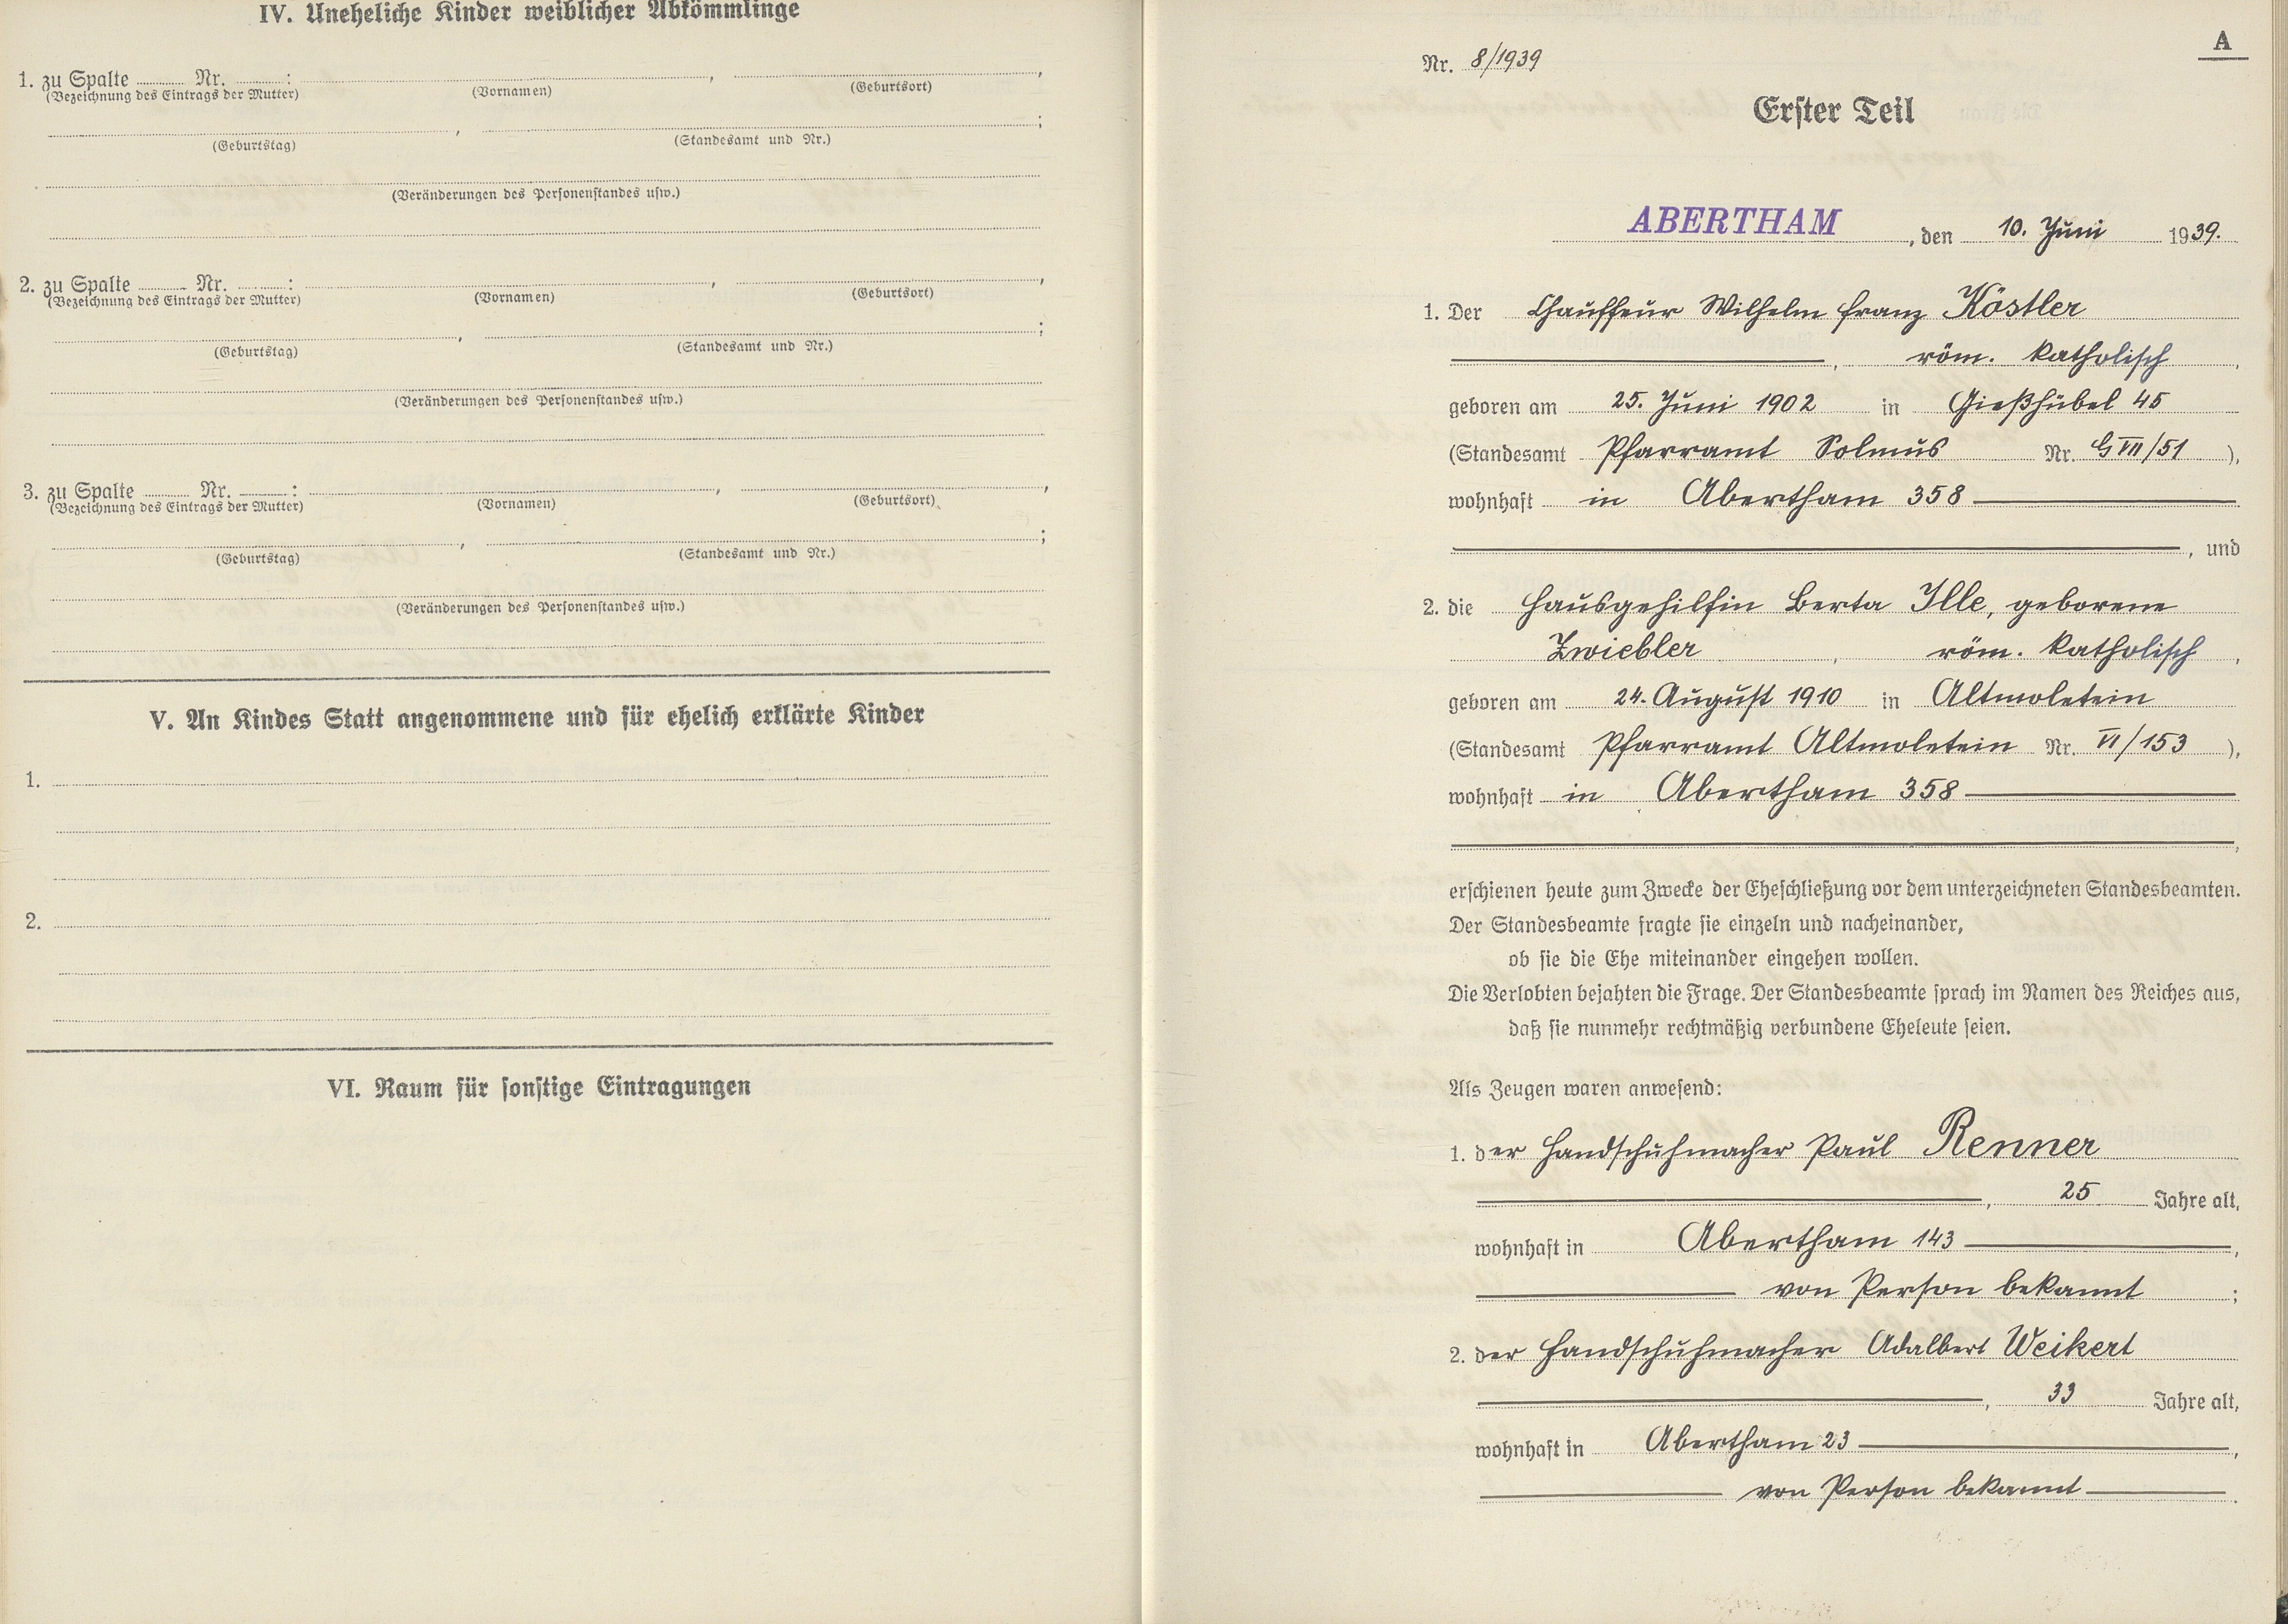 IV. Uneheliche Kinder weiblicher Abkömmlinge
1. zu Spalte ........ Nr. ........ : , ,
(Bezeichnung des Eintrags der Mutter) (Vornamen) (Geburtsort)
, ;
(Geburtstag) (Standesamt und Nr.)
(Veränderungen des Personenstandes usw.)
2. zu Spalte ........ Nr. ........ : , ,
(Bezeichnung des Eintrags der Mutter) (Vornamen) (Geburtsort)
, ;
(Geburtstag) (Standesamt und Nr.)
(Veränderungen des Personenstandes usw.)
3. zu Spalte ........ Nr. ........ : , ,
(Bezeichnung des Eintrags der Mutter) (Vornamen) (Geburtsort)
, ;
(Geburtstag) (Standesamt und Nr.)
(Veränderungen des Personenstandes usw.)
V. An Kindes Statt angenommene und für ehelich erklärte Kinder
1.
2.
VI. Raum für sonstige Eintragungen
A
Nr. 8/1939
Erster Teil
ABERTHAM, den 10. Juni 1939.
1. Der Chauffeur Wilhelm Franz Köstler
, röm. katholisch,
geboren am 25. Juni 1902 in Gießhübel 45
(Standesamt Pfarramt Solmus Nr. G VII/51),
wohnhaft in Abertham 358
, und
2. die Hausgehilfin Berta Ille, geborene
Zwiebler, röm. katholisch,
geboren am 24. August 1910 in Altmoletein
(Standesamt Pfarramt Altmoletein Nr. VI/153),
wohnhaft in Abertham 358
,
erschienen heute zum Zwecke der Eheschließung vor dem unterzeichneten Standesbeamten.
Der Standesbeamte fragte sie einzeln und nacheinander,
ob sie die Ehe miteinander eingehen wollen.
Die Verlobten bejahten die Frage. Der Standesbeamte sprach im Namen des Reiches aus,
daß sie nunmehr rechtmäßig verbundene Eheleute seien.
Als Zeugen waren anwesend:
1. der Handschuhmacher Paul Renner
, 25 Jahre alt,
wohnhaft in Abertham 143,
von Person bekannt;
2. der Handschuhmacher Adalbert Weikert
, 33 Jahre alt,
wohnhaft in Abertham 23,
von Person bekannt.